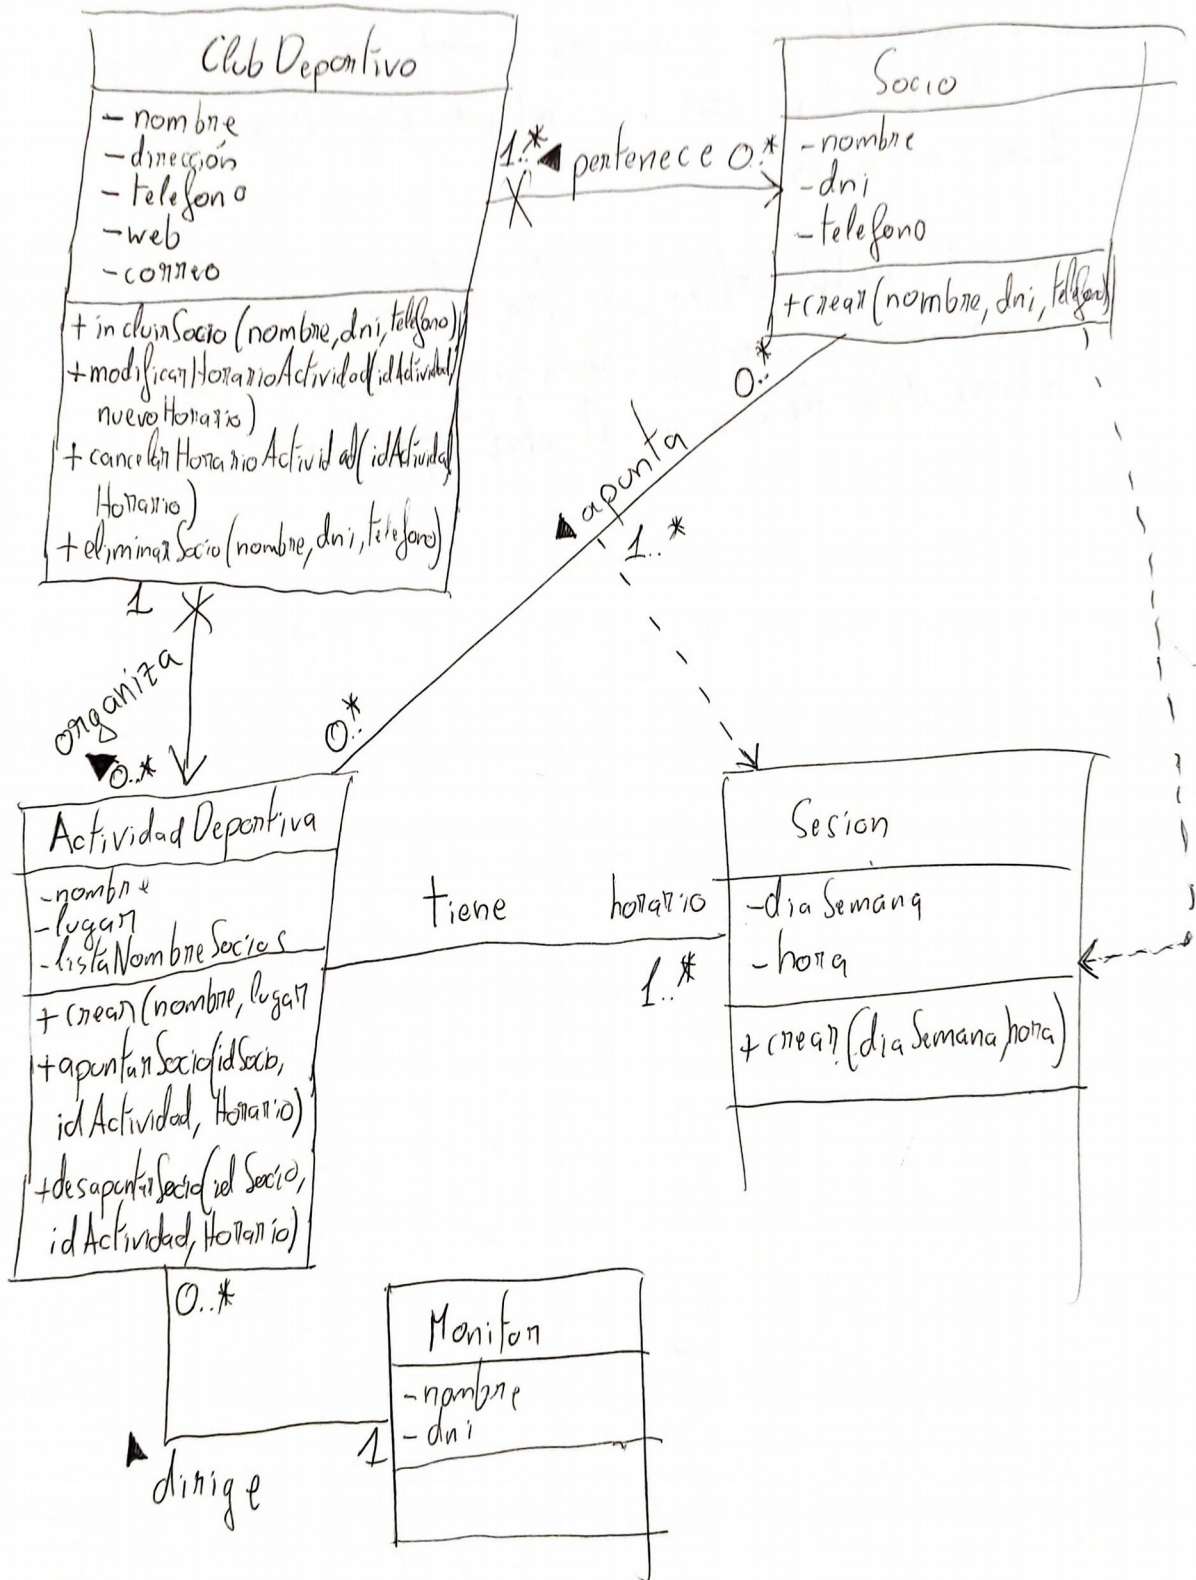 Club Deportivo
- nombre
- dirección
- telefono
- web
- correo
+ incluirSocio (nombre, dni, telefono)
+ modificarHorarioActividad(idActividad,
nuevoHorario)
+ cancelarHorarioActividad(idActividad
Horario)
+ eliminarSocio (nombre, dni, telefono)
Socio
- nombre
- dni
- telefono
+ crear (nombre, dni, telefono)
1..* ◀ pertenece 0..*
0..*
◀ apunta
1..*
0..*
1
organiza
▼ 0..*
Actividad Deportiva
- nombre
- lugar
- listaNombreSocios
+ crear (nombre, lugar
+ apuntarSocio(idSocio,
idActividad, Horario)
+ desapuntarSocio(idSocio,
idActividad, Horario)
tiene horario
1..*
Sesion
- diaSemana
- hora
+ crear (diaSemana, hora)
0..*
Monitor
- nombre
- dni
1
◀ dirige